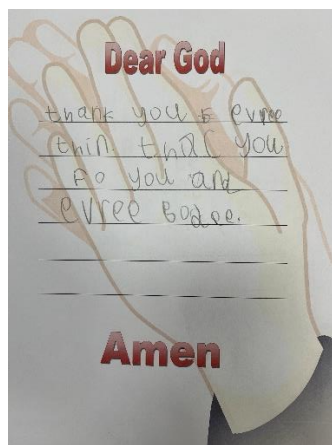 Dear God
thank you & evree
thin. thac you
Fo you and
evree Bodee.
Amen